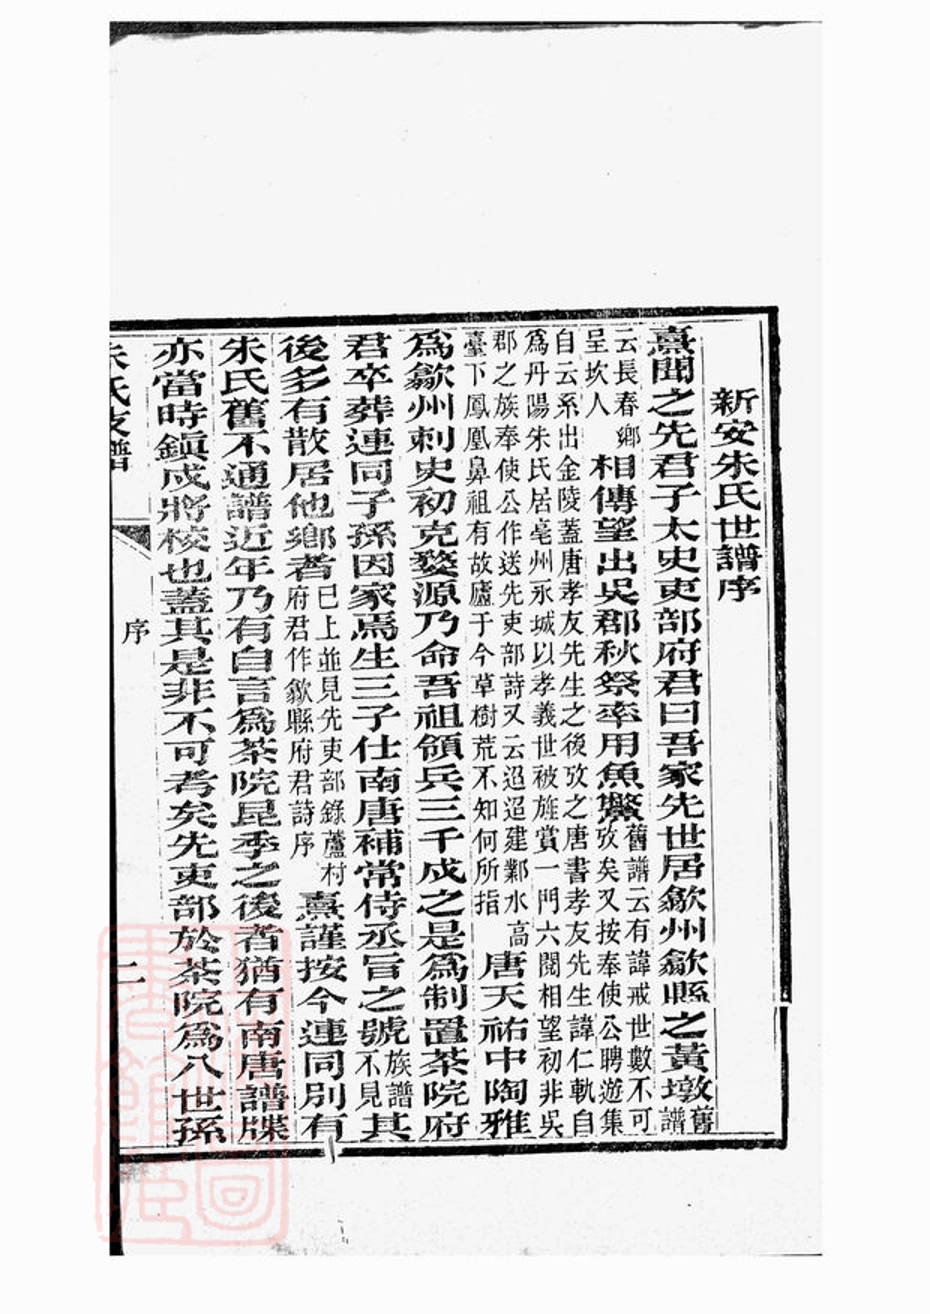 新安朱氏世譜序
熹聞之先君子太史吏部府君曰吾家先世居歙州歙縣之黃墩舊譜
云長春鄉呈坎人相傳望出吳郡秋祭率用魚鱉舊譜云有諱戒世數不可攷矣又按奉使公聘遊集
自云系出金陵蓋唐孝友先生之後攷之唐書孝友先生諱仁軌自
爲丹陽朱氏居亳州永城以孝義世被旌賞一門六闕相望初非吳
郡之族奉使公作送先吏部詩又云迢迢建鄴水高
臺下鳳凰鼻祖有故廬于今草樹荒不知何所指唐天祐中陶雅
爲歙州刺史初克婺源乃命吾祖領兵三千戍之是爲制置茶院府
君卒葬連同子孫因家焉生三子仕南唐補常侍丞旨之號族譜不見其
後多有散居他鄉者已上並見先吏部錄蘆村府君作歙縣府君詩序熹謹按今連同別有
朱氏舊不通譜近年乃有自言爲茶院昆季之後者猶有南唐譜牒
亦當時鎭戍將校也蓋其是非不可考矣先吏部於茶院爲八世孫
朱氏支譜
序
二